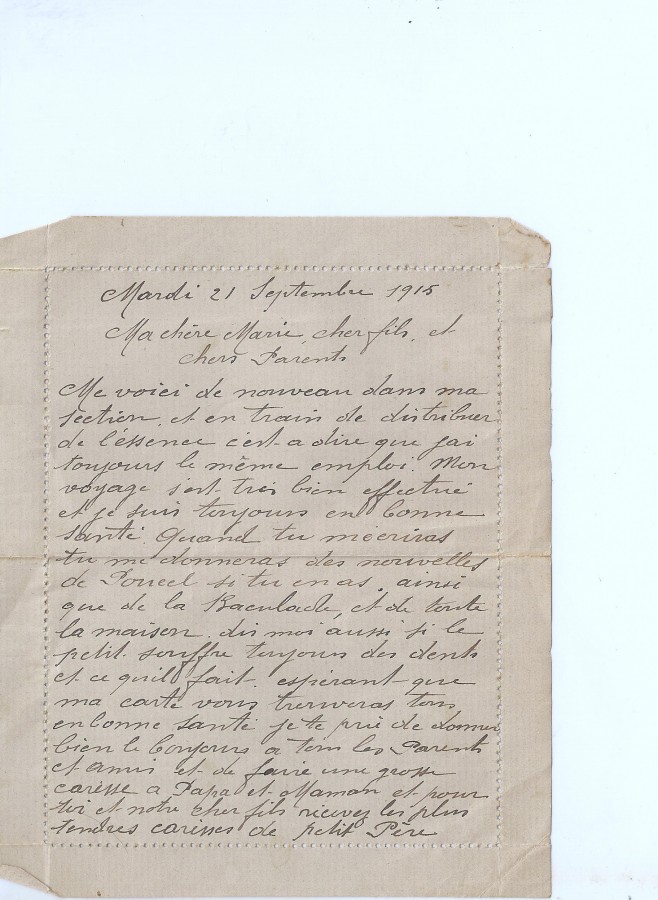 Mardi 21 Septembre 1915
Ma chère Marie, cher fils, et
chers Parents
Me voici de nouveau dans ma
section, et en train de distribuer
de l'éssence c'est a dire que j'ai
toujours le même emploi. Mon
voyage s'est très bien effectué
et je suis toujours en bonne
santé. Quand tu m'ecriras
tu me donneras des nouvelles
de si tu en as, ainsi
que de la et de toute
la maison. dis moi aussi si le
petit souffre toujours des dents
et ce qu'il fait. espérant que
ma carte vous trouveras tous
en bonne santé je te prie de donner
bien le bonjours a tous les Parents
et amis et de faire une grosse
caresse a Papa et Maman et pour
toi et notre cher fils recevez les plus
tendres caresses de petit Père